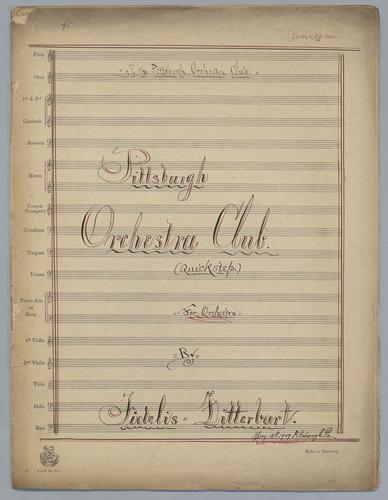 45
Flute
Oboe
"To the Pittsburgh Orchestra Club."
1st & 2nd
Clarinets
Bassoon
Pittsburgh
Horns
Cornets
Trumpets
Trombone
Orchestra Club.
Timpani
(Quickstep.)
Drums
Piano-Acc
or
Harp
For Orchestra
1st Violin
By
2nd Violin
Viola
Cello
Fidelis Zitterbart.
Bass
1907. Pittsburgh Pa.
Made in Germany